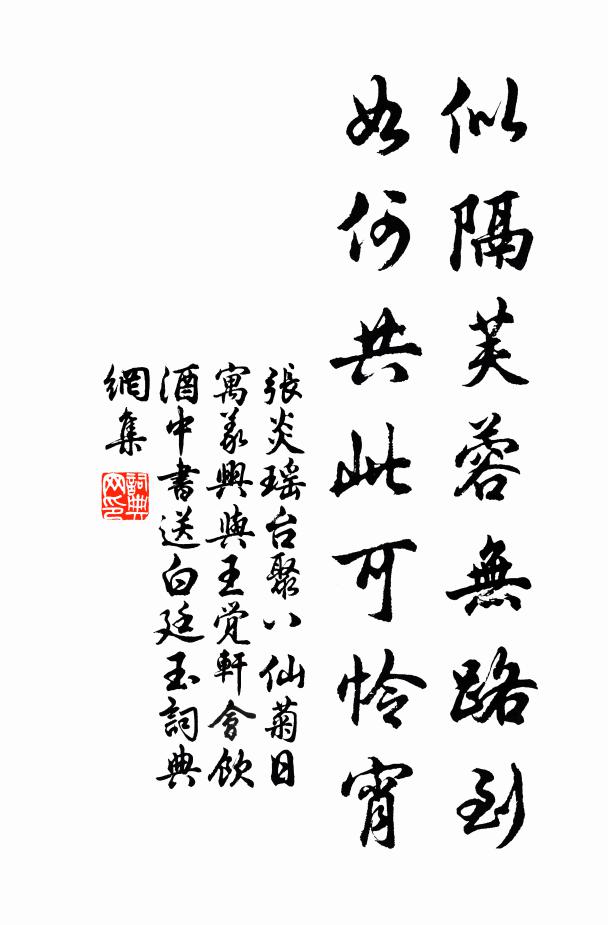 似隔芙蓉無路到
如何共此可憐宵
張炎瑶台聚八仙菊日
寓義興與王覚軒會飲
酒中書送白廷玉詞典
網集
詞典
网印